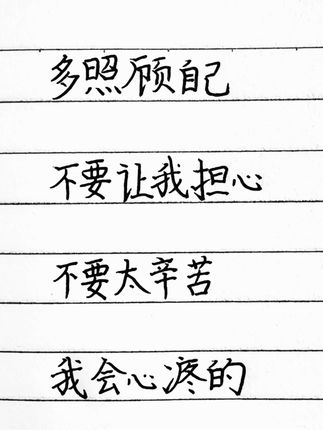 多照顾自己
不要让我担心
不要太辛苦
我会心疼的